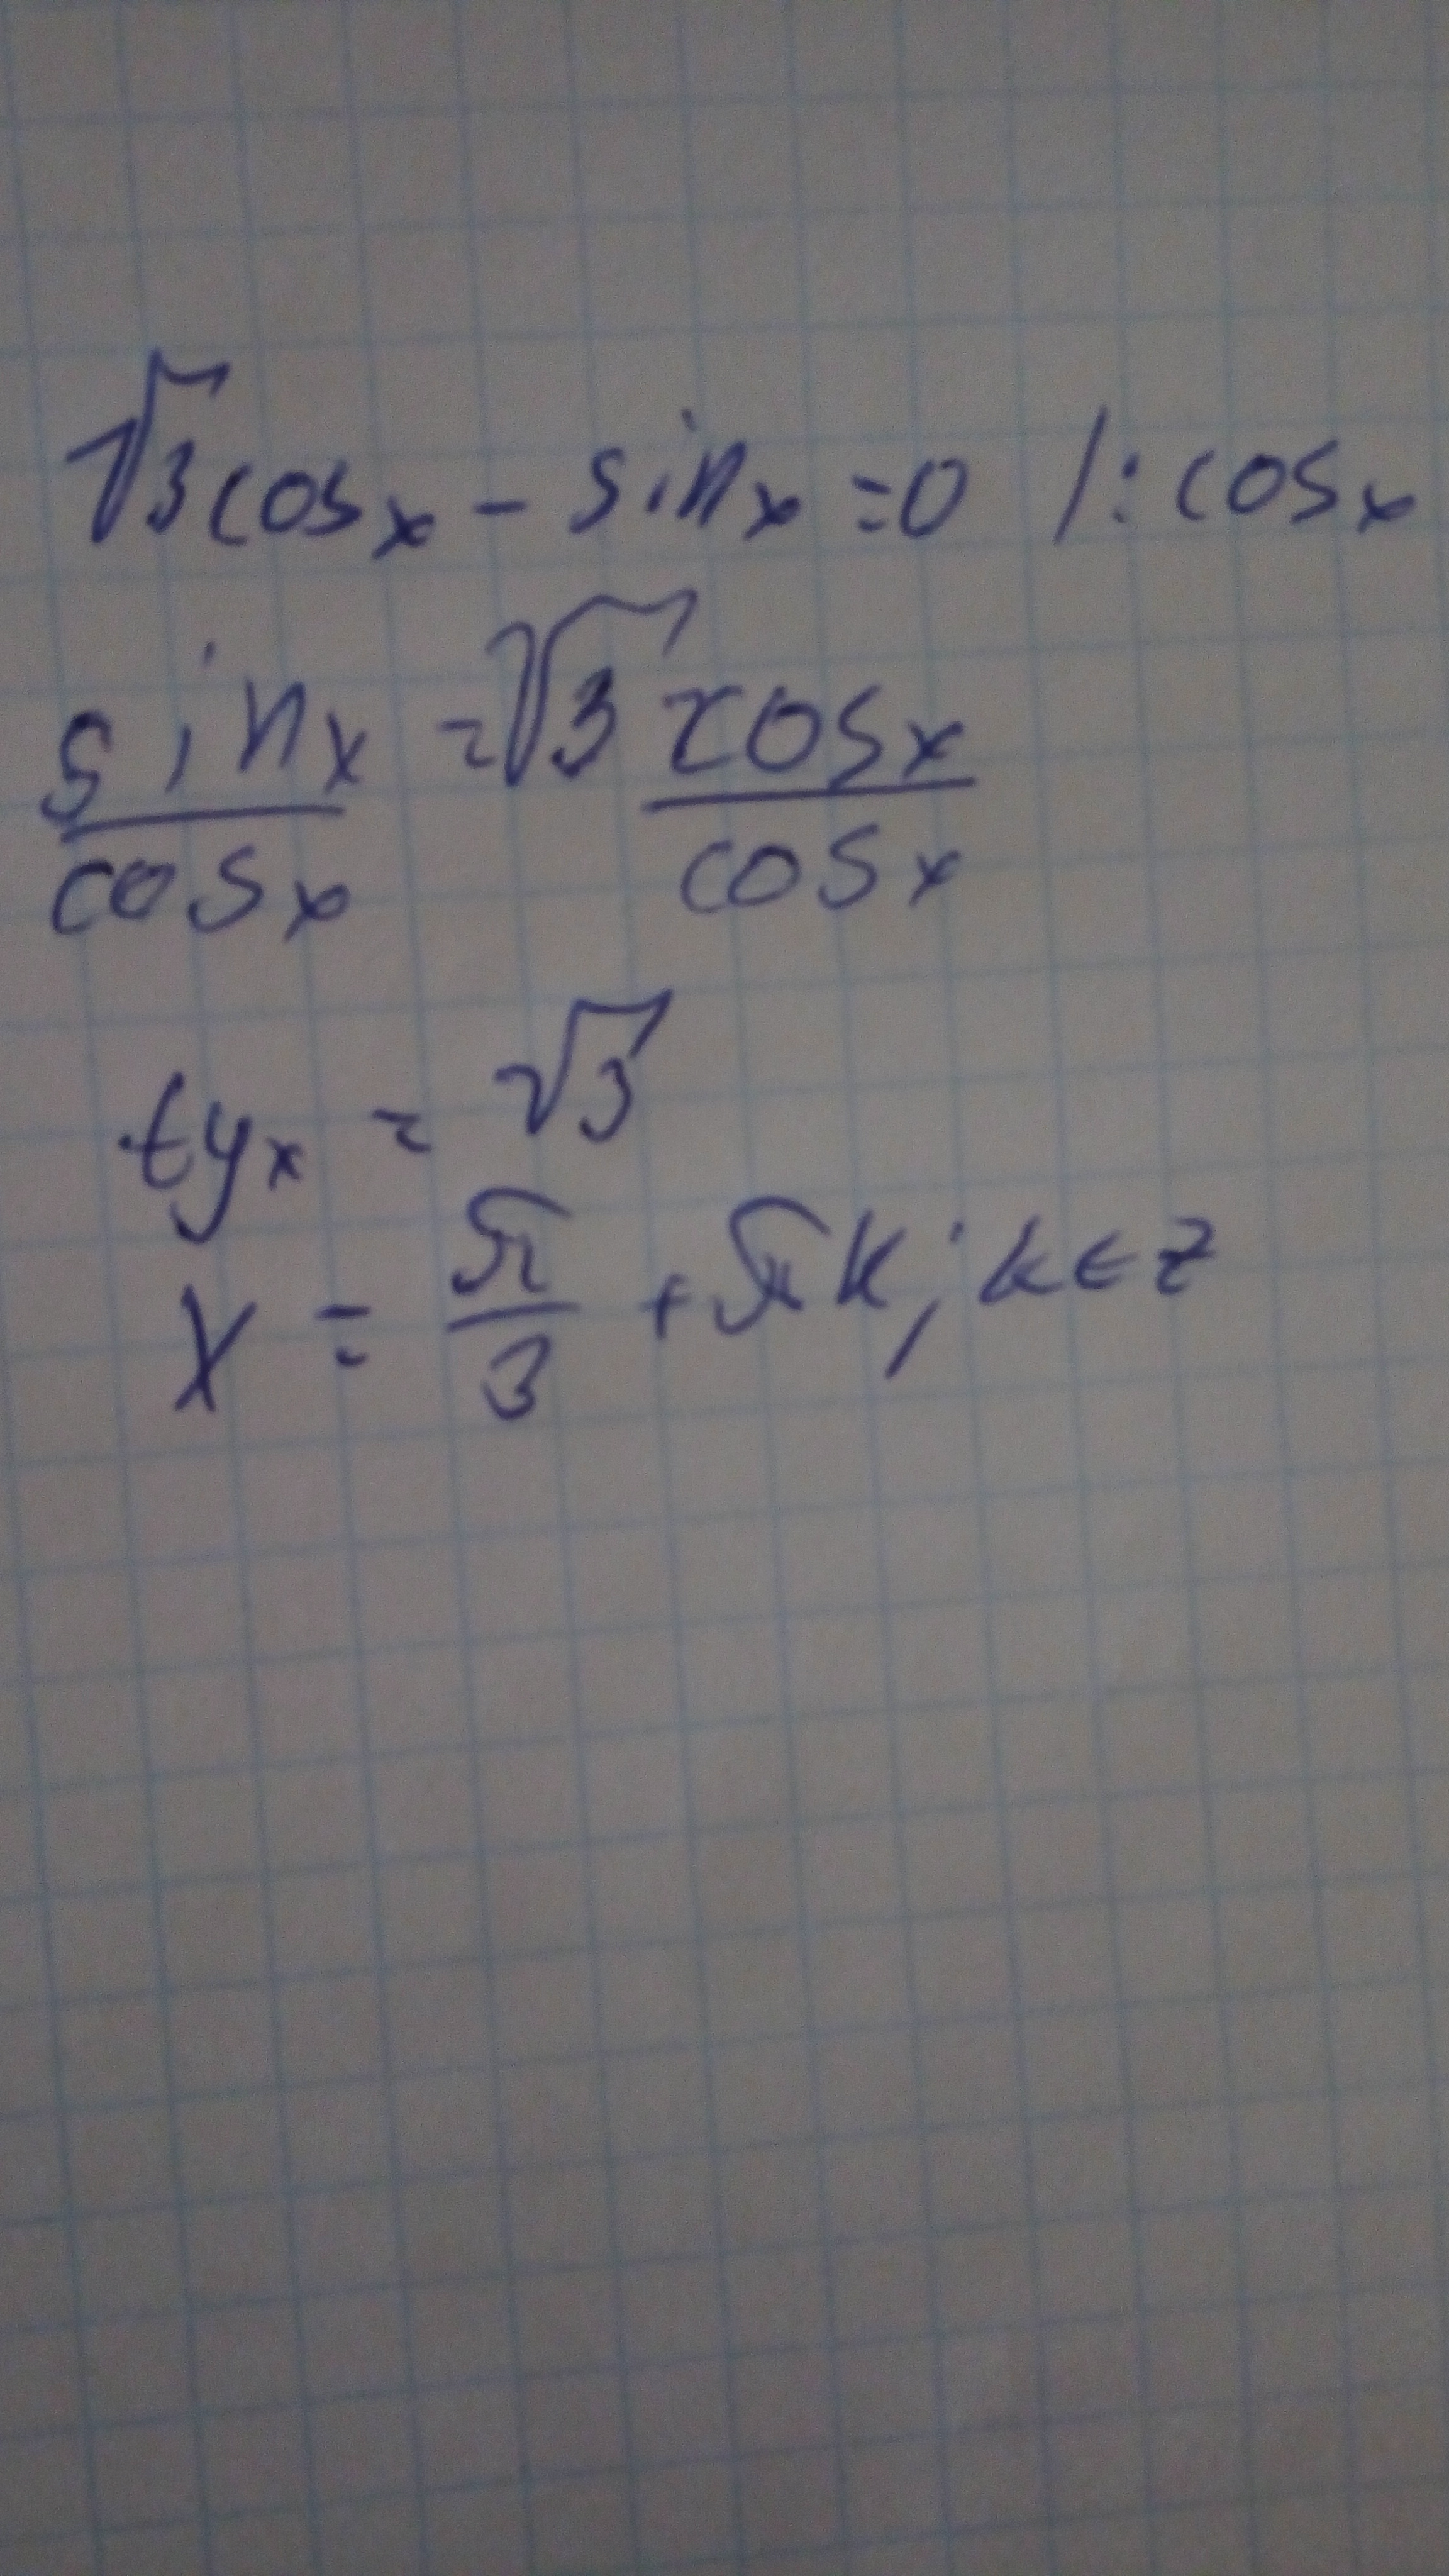 √3cosx - sinx = 0 /: cosx
sinx/cosx = √3 cosx/cosx
tgx = √3
x = π/3 + πk; k ∈ z